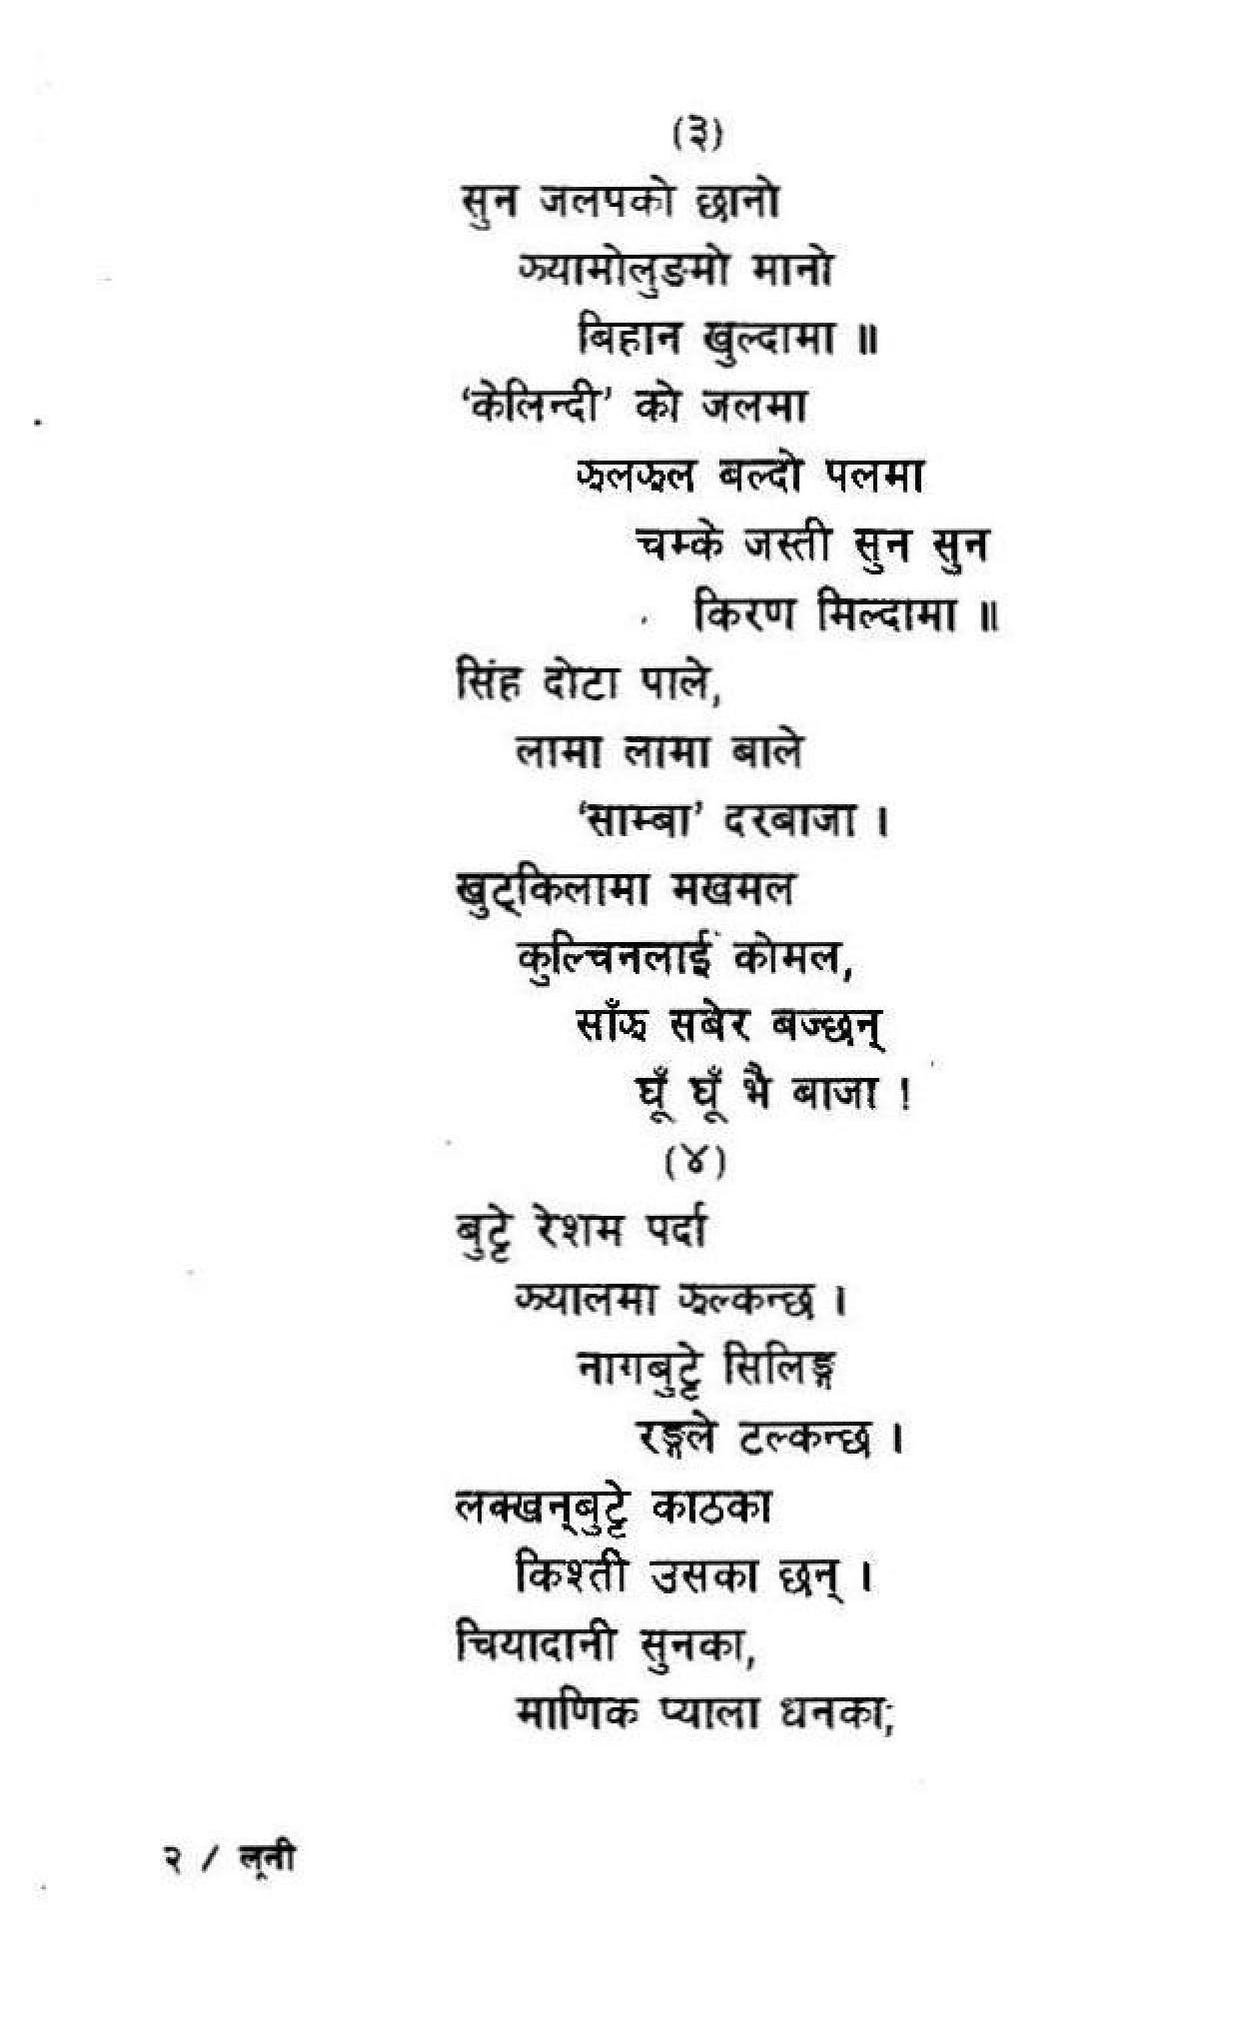 (३)
सुन जलपको छानो
झ्यामोलुङमो मानो
बिहान खुल्दामा ॥
‘केलिन्दी’ को जलमा
झलझल बल्दो पलमा
चम्के जस्ती सुन सुन
किरण मिल्दामा ॥
सिंह दोटा पाले,
लामा लामा बाले
‘साम्बा’ दरबाजा ।
खुट्किलामा मखमल
कुल्चिनलाई कोमल,
साँझ सबेर बज्छन्
घूँ घूँ भै बाजा !
(४)
बुट्टे रेशम पर्दा
झ्यालमा झल्कन्छ ।
नागबुट्टे सिलिङ्ग
रङ्गले टल्कन्छ ।
लक्खन्बुट्टे काठका
किश्ती उसका छन् ।
चियादानी सुनका,
माणिक प्याला धनका;
२ / लूनी